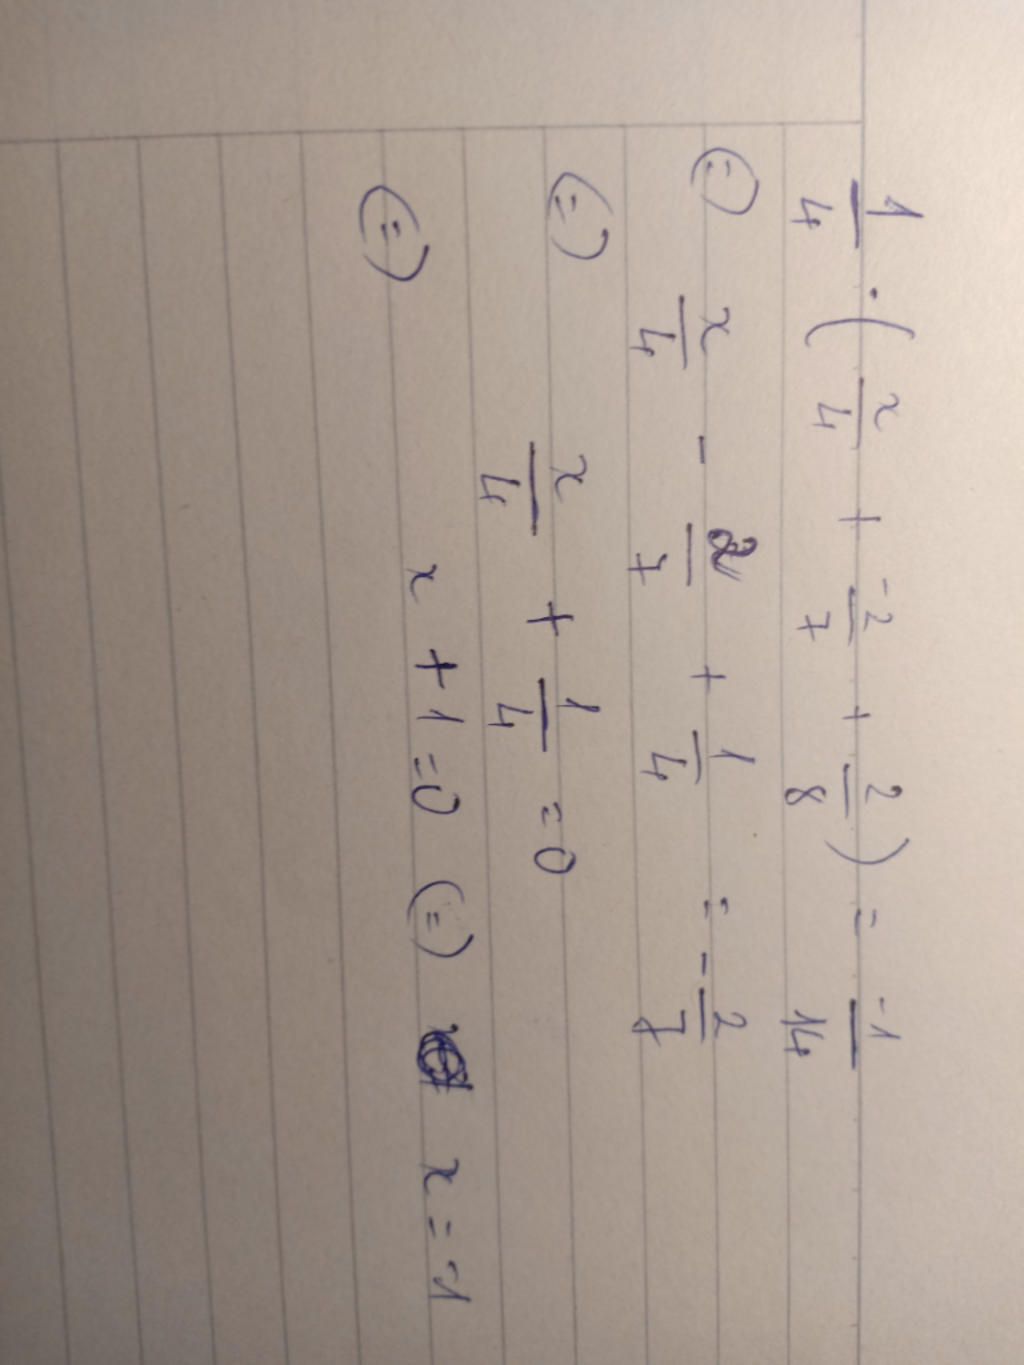 1/4 · (x/4 + -2/7 + 2/8) = -1/14
(=) x/4 - 2/7 + 1/4 = -2/7
(=) x/4 + 1/4 = 0
(=) x + 1 = 0 (=) x = -1